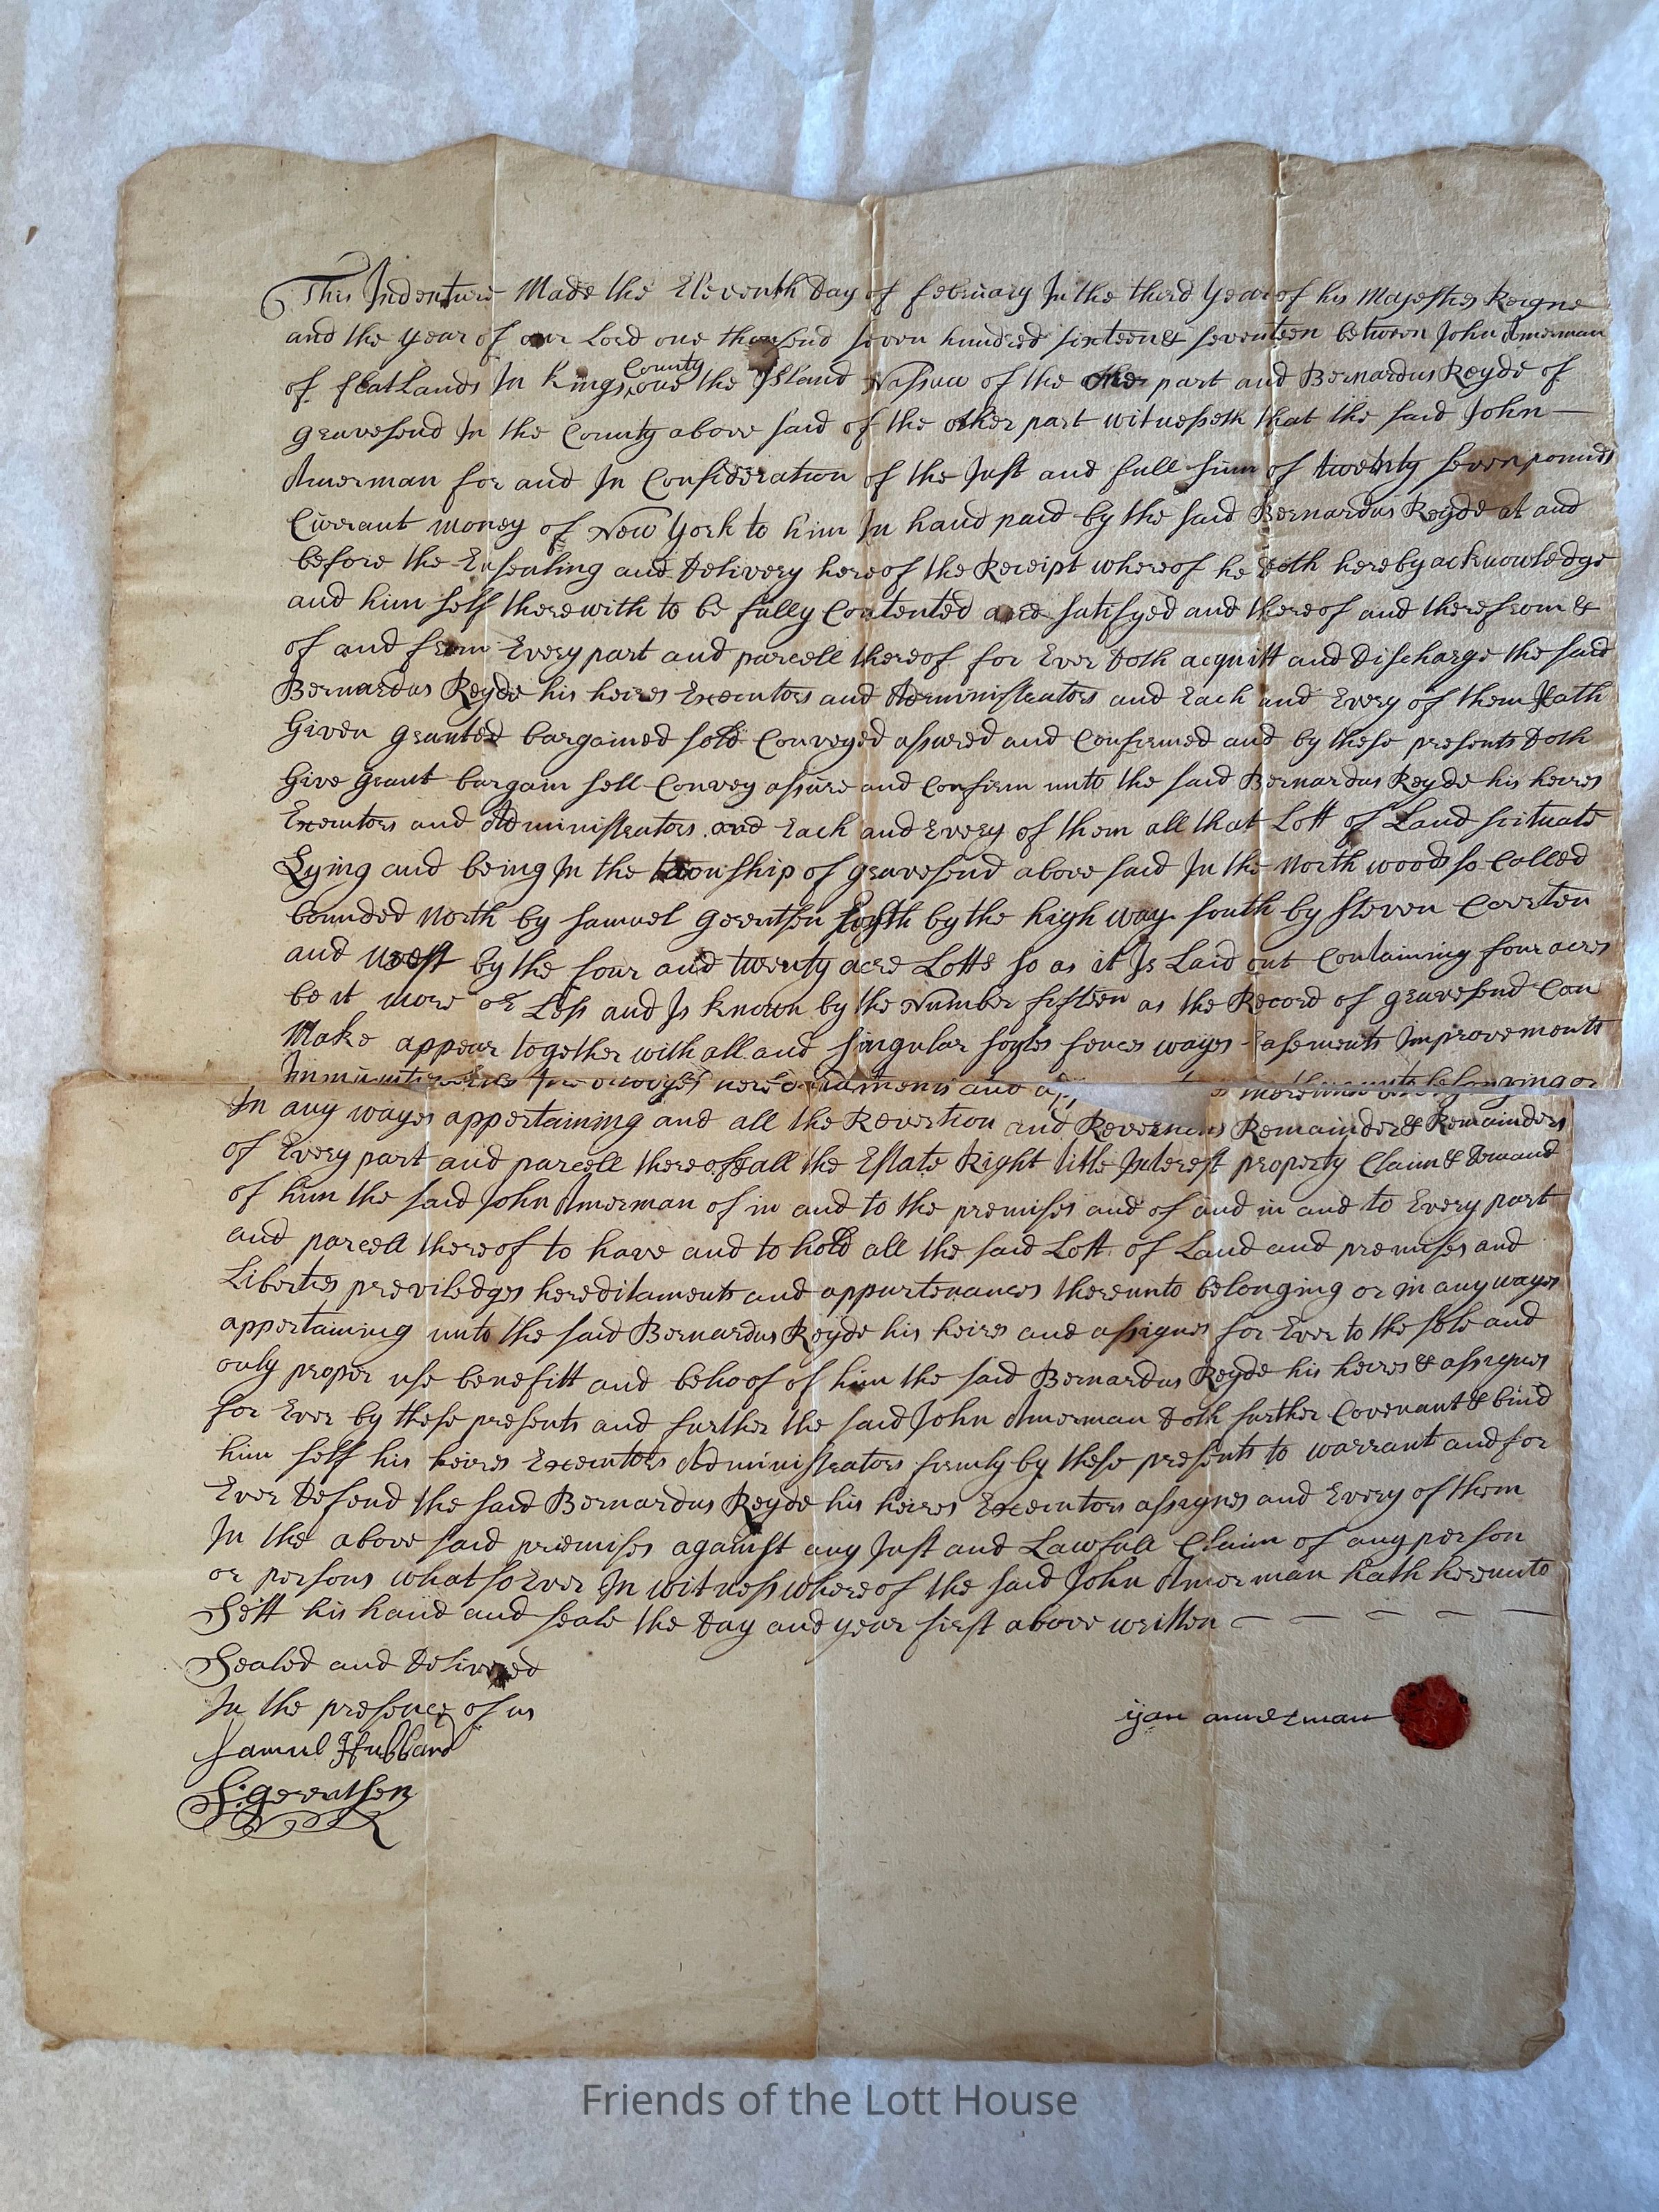 This Indenture Made the Eleventh Day of february In the third Year of his Majesties Reigne
and the year of our Lord one thousend seven hundred sixteen & seventeen between John Amerman
of flatLands In Kings County one the Island Nassaw of the one part and Bernardus Reyde of
gravesend In the County above said of the other part witnesseth that the said John —
Amerman for and In Consideration of the Just and full sum of twenty seven pounds
Currant money of New York to him In hand paid by the said Bernardus Reyde at and
before the Ensealing and Delivery hereof the Receipt whereof he Doth hereby acknowledge
and him self therewith to be fully Contented and satisfyed and thereof and therefrom &
of and from Every part and parcell thereof for Ever Doth acquitt and Discharge the said
Bernardus Reyde his heires Executors and Administrators and Each and Every of them Hath
Given granted bargained sold Conveyed assured and Confirmed and by these presents Doth
Give grant bargain sell Convey assure and Confirm unto the said Bernardus Reyde his heires
Executors and Administrators and Each and Every of them all that Lott of Land scituate
Lying and being In the township of gravesend above said In the North woods so Called
bounded North by samuel gerentsen by the high way south by steven Coerten
and west by the four and twenty acre Lotts so as it Is Laid out Containing four acres
be it more or Less and Is known by the Number fifteen as the Record of gravesend Can
Make appear together with all and singular soyles fences wayes Easements Improvements
and belonging or
In any wayes appertaining and all the Revertion and Revertions Remainder & Remainders
of Every part and parcell thereof & all the Estate Right title Interest property Claim & Demand
of him the said John Amerman of in and to the premises and of and in and to Every part
and parcell thereof to have and to hold all the said Lott of Land and premises and
Liberties previledges hereditaments and appurtenances thereunto belonging or in any wayes
appertaining unto the said Bernardus Reyde his heires and assignes for Ever to the sole and
only proper use benefitt and behoof of him the said Bernardus Reyde his heires & assignes
for Ever by these presents and further the said John Amerman Doth further Covenant & bind
him self his heires Executors Administrators firmly by these presents to warrant and for
Ever Defend the said Bernardus Reyde his heires Executors assignes and Every of them
In the above said premises against any Just and Lawfull Claim of any person
or persons what so Ever In witness whereof the said John Amerman hath hereunto
Sett his hand and seale the Day and year first above written — — — — —
Sealed and Delivered
In the presence of us
Samul Hubbard
S: gerentsen
ijan amerman
Friends of the Lott House